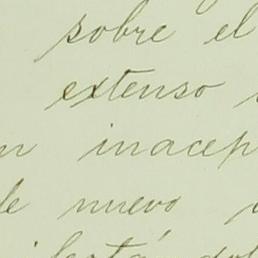 sobre el
extenso
inacep
de nuevo
está